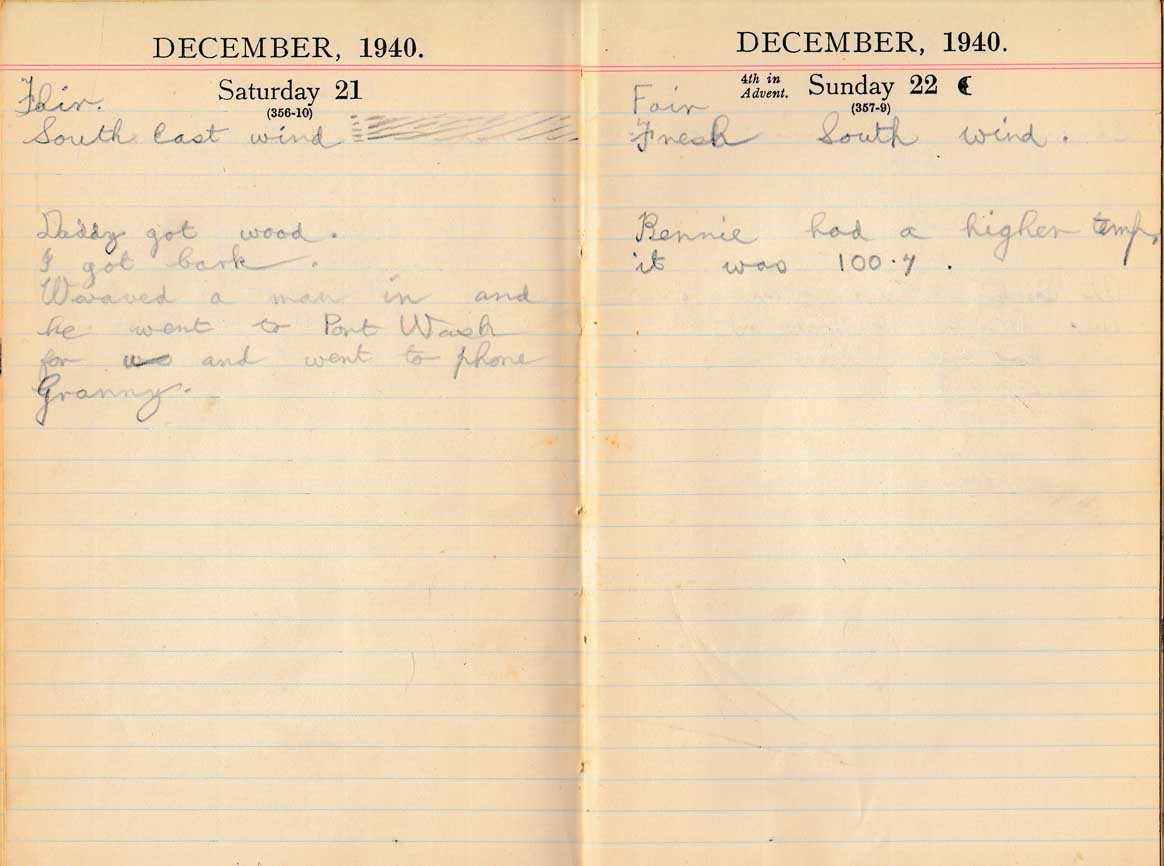 DECEMBER, 1940.
Saturday 21
(356-10)
Fair.
South East wind
Daddy got wood.
I got bark.
Wwaved a man in and
he went to Port Wash
for us and went to phone
Granny.
DECEMBER, 1940.
4th in Advent. Sunday 22
(357-9)
Fair
Fresh South wind.
Bennie had a higher temp,
it was 100.4.